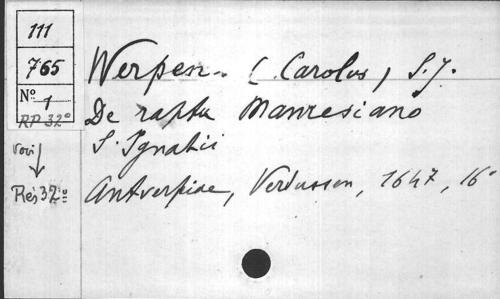 111
765
Nº 1
RP 32º
voir
Rés 32º
Werpen - (Carolus) S.J.
De raptu Manresiano
S. Ignatii
Antverpiae, Verdussen, 1647, 16º